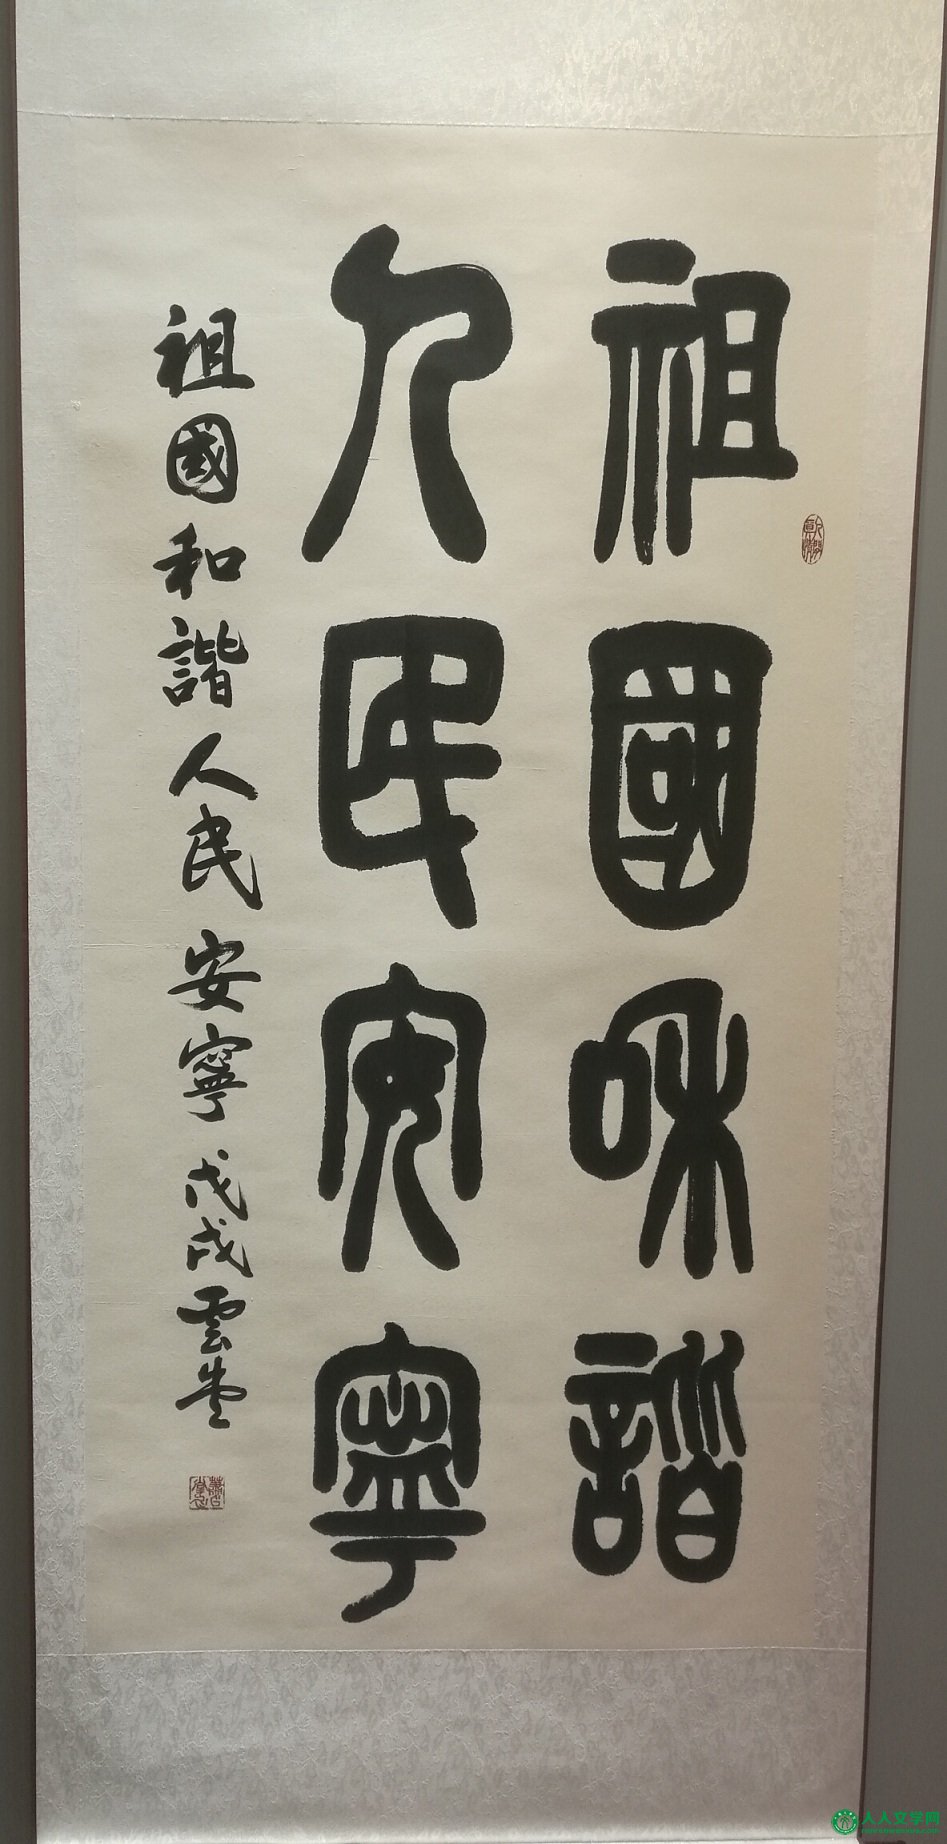 祖國和諧
人民安寧
祖國和諧人民安寧戊戌雲堂
人人文学网